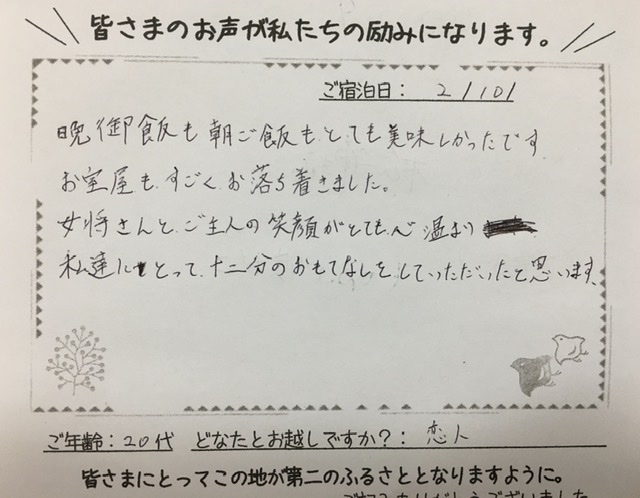 皆さまのお声が私たちの励みになります。
ご宿泊日: 2/10/
晩御飯も朝ご飯もとても美味しかったです
お室屋も、すごくお落ち着きました。
女将さんと、ご主人の笑顔がとても心温まり
私達にとって、十二分のおもてなしをしていっただいたと思います。
ご年齢:20代 どなたとお越しですか?: 恋人
皆さまにとってこの地が第二のふるさととなりますように。
ありがとうございました